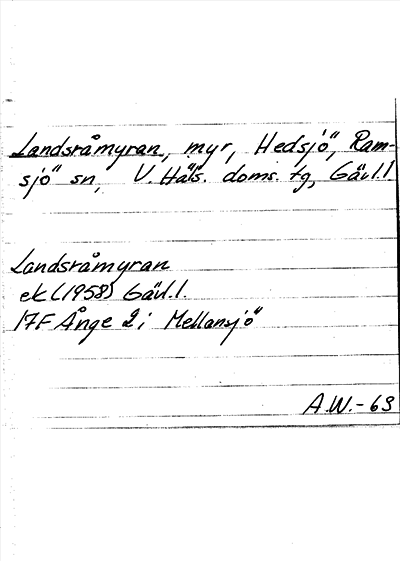 Landsråmyran, myr, Hedsjö, Ram-
sjö sn, V. Häls. doms. tg, Gävl.l
Landsråmyran
ek (1958) Gävl.l.
17F Ånge 2i Mellansjö
A.W.-63